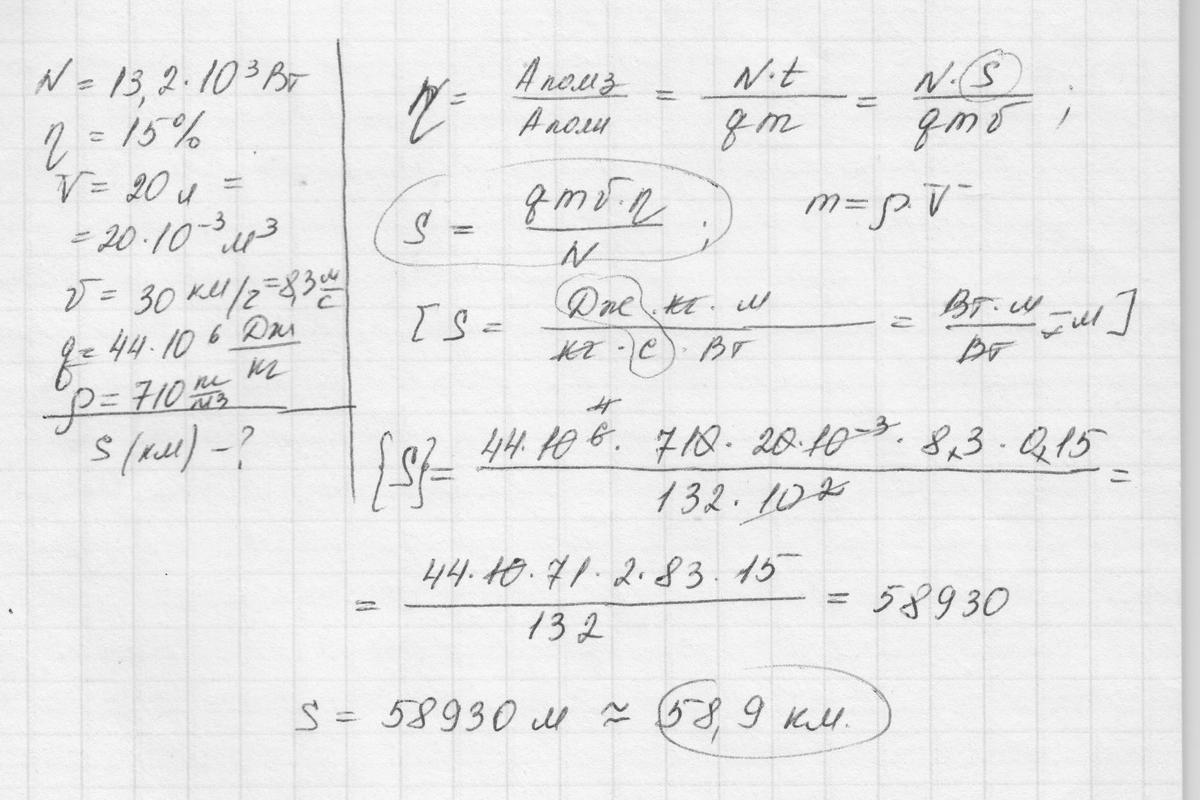 N = 13,2·10³ Вт
η = 15%
V = 20 л =
= 20·10⁻³ м³
v = 30 км/ч = 8,3 м/с
q = 44·10⁶ Дж/кг
ρ = 710 кг/м³
S (км) - ?
η = Aполез/Aполн = N·t/qm = N·S/qmv ;
S = qmv·η/N ; m = ρ·V
[S = Дж·кг·м/кг·с·Вт = Вт·м/Вт = м]
{S} = 44·10⁶·710·20·10⁻³·8,3·0,15/132·10² =
= 44·10·71·2·83·15/132 = 58930
S = 58930 м ≈ 58,9 км.